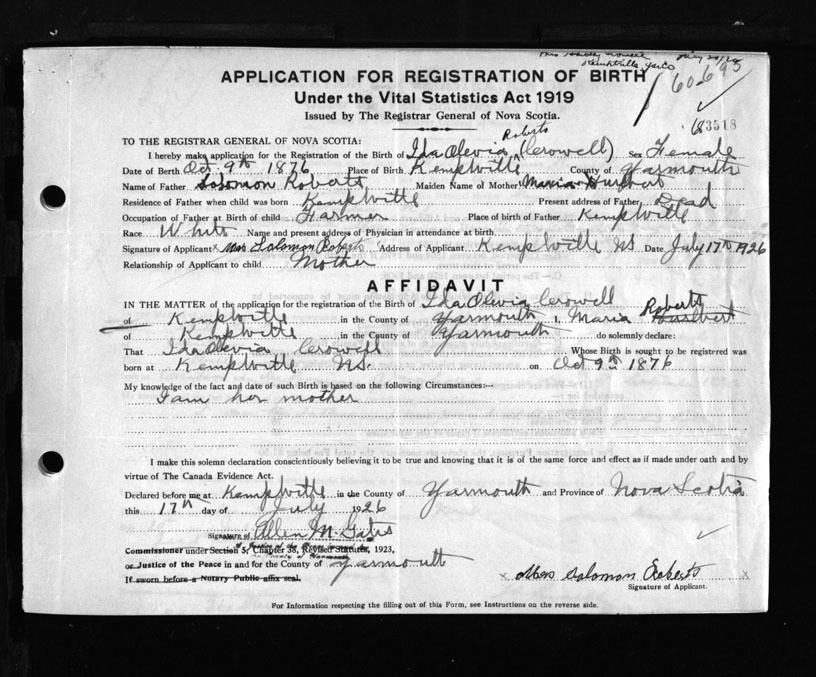 Mrs
Kemptville Yar Co
60-695
APPLICATION FOR REGISTRATION OF BIRTH
Under the Vital Statistics Act 1919
Issued by The Registrar General of Nova Scotia.
63518
Roberts
TO THE REGISTRAR GENERAL OF NOVA SCOTIA:
I hereby make application for the Registration of the Birth of Ida Olevia (Cerowell) Sex Female
Date of Birth Oct 9th 1876 Place of Birth Kemptville County of Yarmouth
Name of Father Solomon Roberts Maiden Name of Mother Maria Hurlbert
Residence of Father when child was born Kemptville Present address of Father Dead
Occupation of Father at Birth of child Farmer Place of birth of Father Kemptville
Race White Name and present address of Physician in attendance at birth
Signature of Applicant x Mrs Solomon Roberts Address of Applicant Kemptville NS Date July 17th 1926
Relationship of Applicant to child Mother
AFFIDAVIT
IN THE MATTER of the application for the registration of the Birth of Ida Olevia Cerowell
of Kemptville in the County of Yarmouth I, Maria Roberts Hurlbert
of Kemptville in the County of Yarmouth do solemnly declare:
That Ida Olevia Cerowell Whose Birth is sought to be registered was
born at Kemptville NS. on Oct 9th 1876
My knowledge of the fact and date of such Birth is based on the following Circumstances:—
I am her mother
I make this solemn declaration conscientiously believing it to be true and knowing that it is of the same force and effect as if made under oath and by
virtue of The Canada Evidence Act.
Declared before me at Kemptville in the County of Yarmouth and Province of Nova Scotia
this 17th day of July 1926
Signature of Allen M. Gates
Commissioner under Section 5, Chapter 38, Revised Statutes, 1923,
or Justice of the Peace in and for the County of Yarmouth
If sworn before a Notary Public affix seal.
x Mrs Solomon Roberts x
Signature of Applicant.
For Information respecting the filling out of this Form, see Instructions on the reverse side.